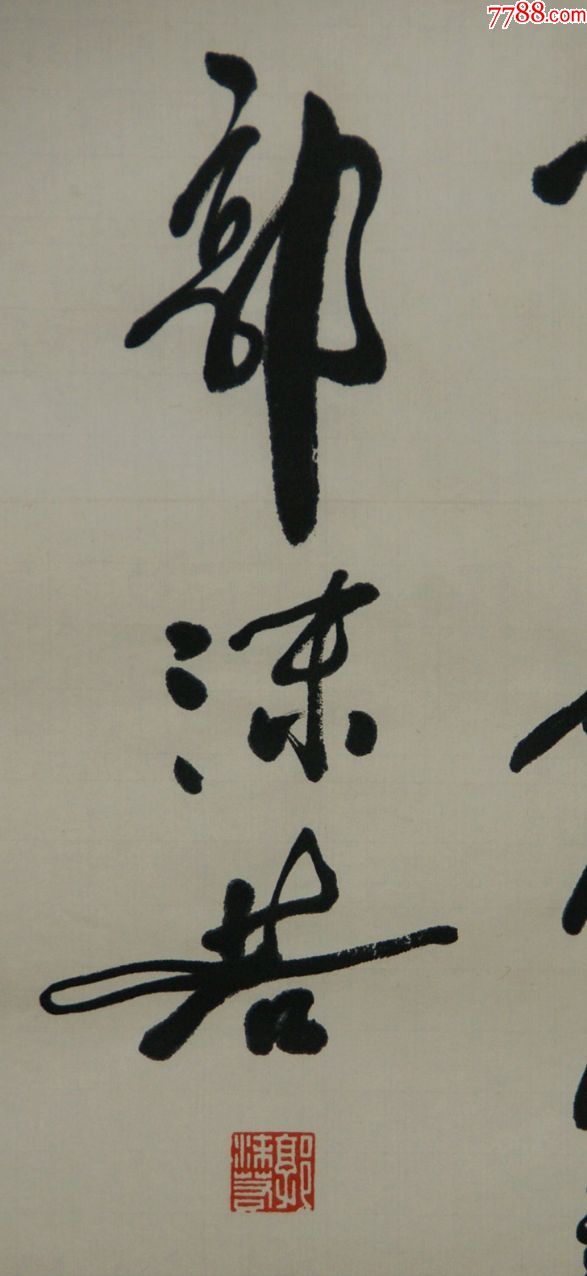 7788.com
郭沫若
郭沫若